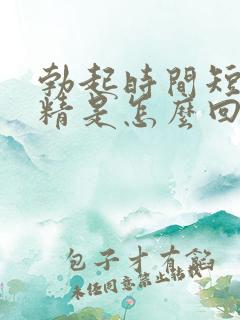 勃起時間短
精是怎麼回
包子才有餡
未任同意禁止转载